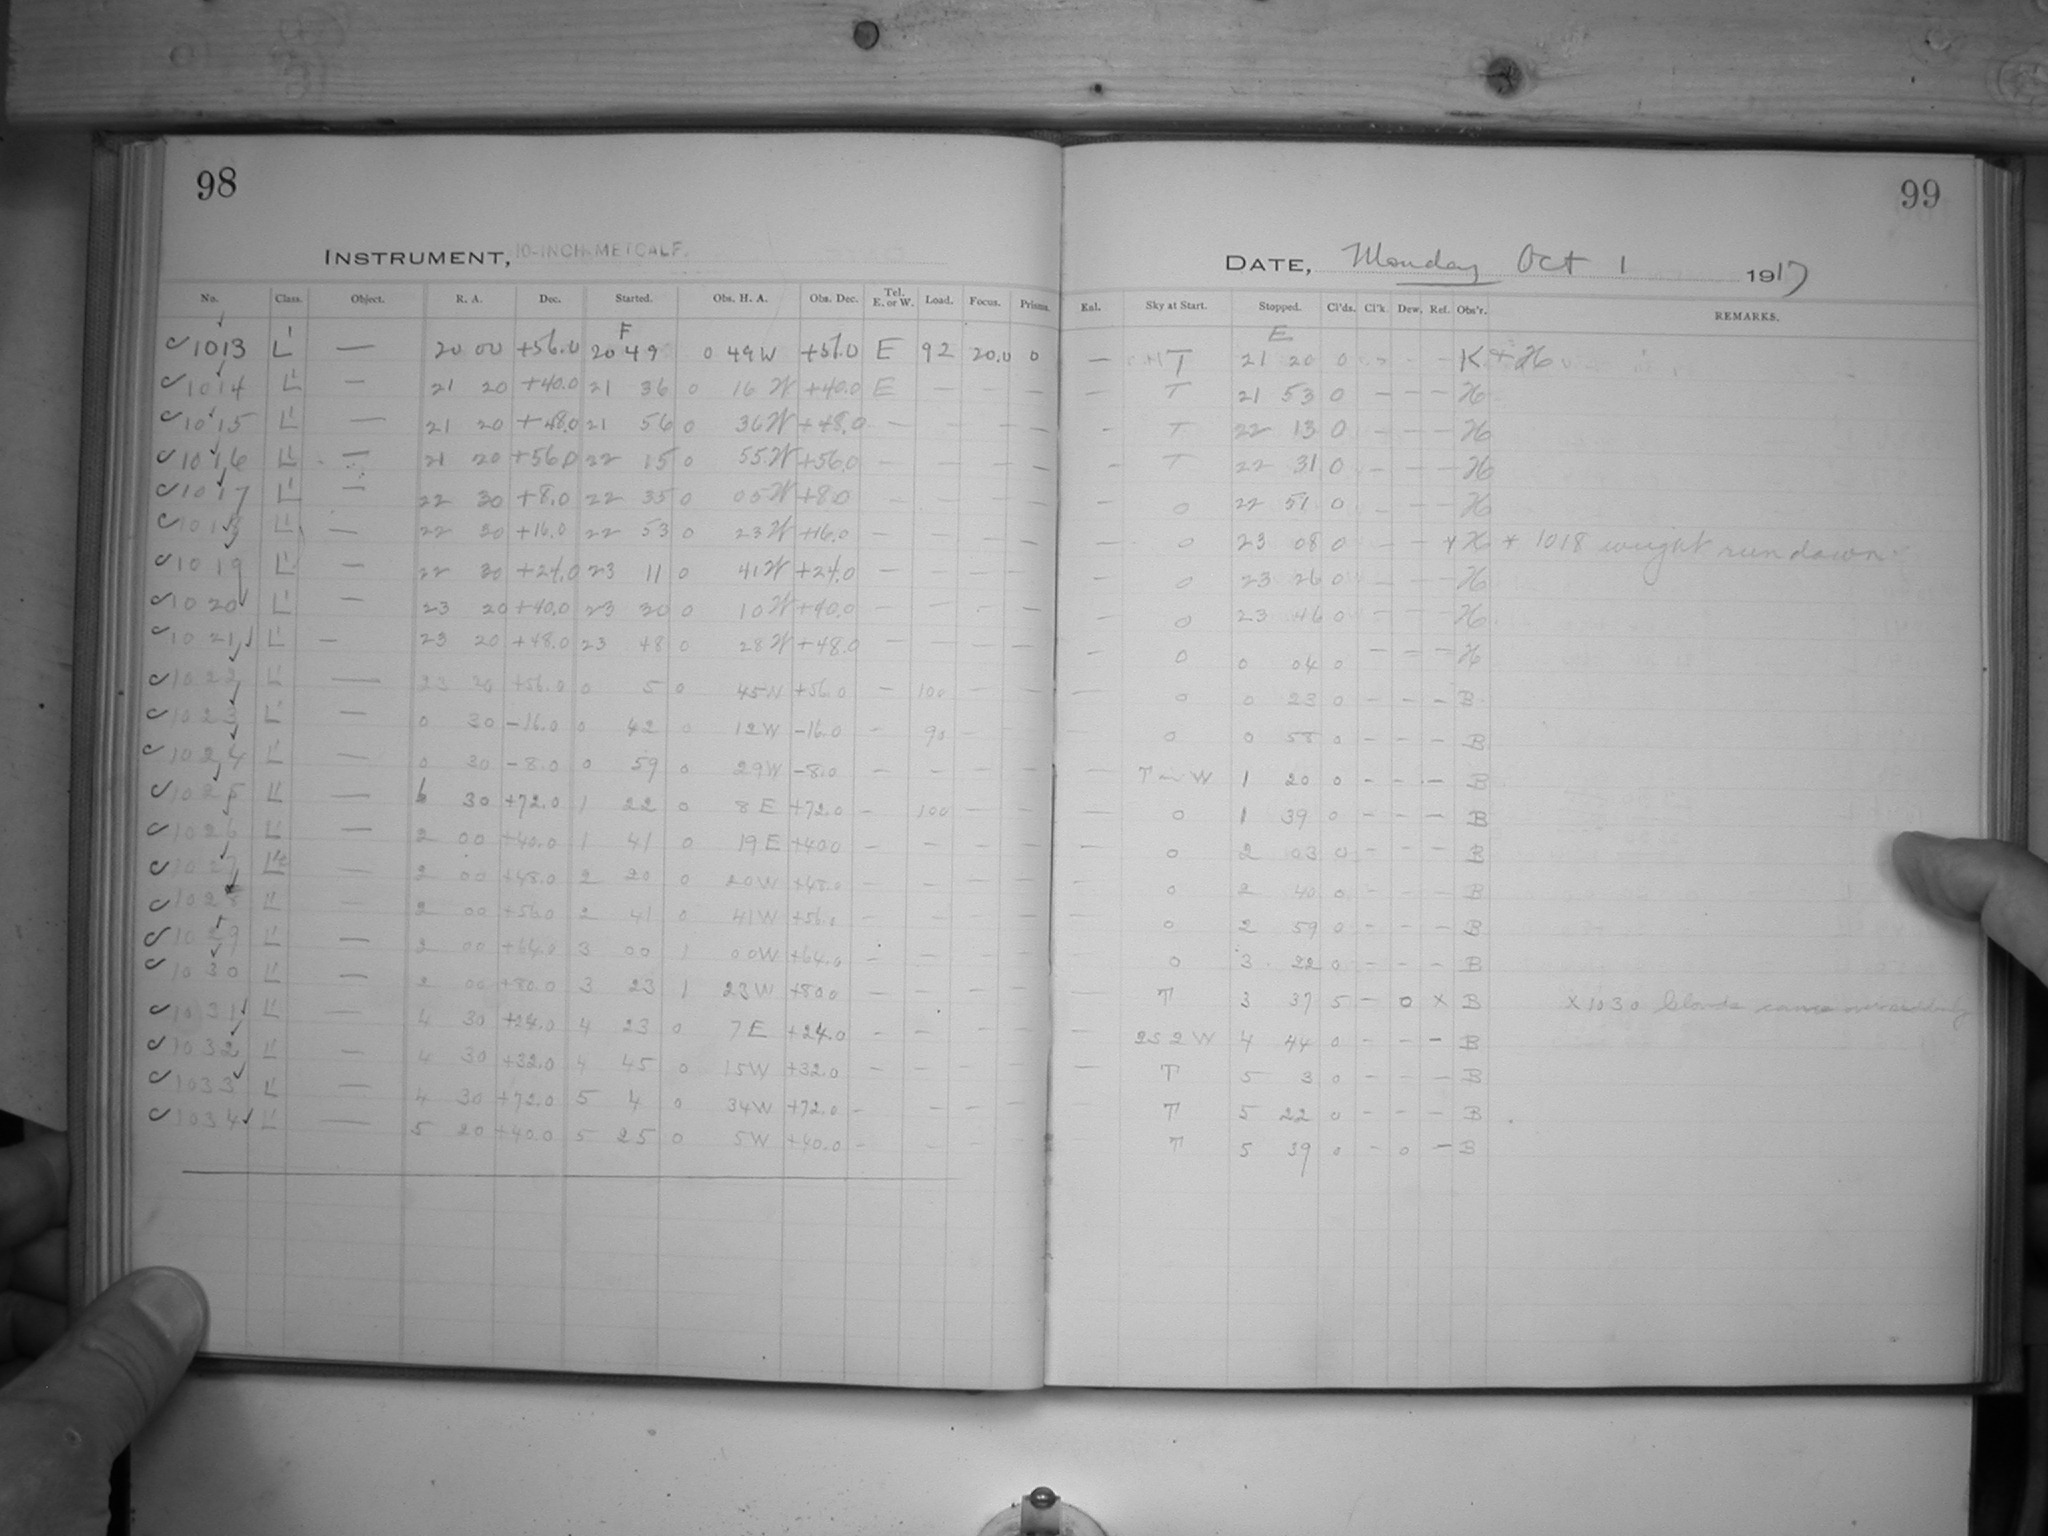 98
INSTRUMENT, 10-INCH METCALF.
No. Class. Object. R. A. Dec. Started. Obs. H. A. Obs. Dec. Tel. E. or W. Load. Focus. Prisms.
F
1013 L' — 20 00 +56.0 20 49 0 49W +57.0 E 92 20.0 0
1014 L' — 21 20 +40.0 21 36 0 16 W +40.0 E — — —
1015 L' — 21 20 +48.0 21 56 0 36 W +48.0 — — — —
1016 L' — 21 20 +56.0 22 15 0 55 W +56.0 — — — —
1017 L' — 22 30 +8.0 22 35 0 05 W +8.0 — — — —
1018 L' — 22 30 +16.0 22 53 0 23 W +16.0 — — — —
1019 L' — 22 30 +24.0 23 11 0 41 W +24.0 — — — —
1020 L' — 23 20 +40.0 23 30 0 10 W +40.0 — — — —
1021 L' — 23 20 +48.0 23 48 0 28 W +48.0 — — — —
1022 L' — 23 20 +56.0 0 5 0 45W +56.0 — 100 — —
1023 L' — 0 30 -16.0 0 42 0 12W -16.0 — 90 — —
1024 L' — 0 30 -8.0 0 59 0 29W -8.0 — — — —
1025 L' — 30 +72.0 1 22 0 8 E +72.0 — 100 — —
1026 L' — 2 00 +40.0 1 41 0 19 E +40.0 — — — —
1027 — 2 00 +48.0 2 20 0 20W +48.0 — — — —
1028 L' — 2 00 +56.0 2 41 0 41W +56.0 — — — —
1029 L' — 2 00 +64.0 3 00 1 00W +64.0 — — — —
1030 L' — 2 00 +80.0 3 23 1 23W +80.0 — — — —
1031 L' — 4 30 +24.0 4 23 0 7 E +24.0 — — — —
1032 L' — 4 30 +32.0 4 45 0 15W +32.0 — — — —
1033 L' — 4 30 +72.0 5 4 0 34W +72.0 — — — —
1034 L' — 5 20 +40.0 5 25 0 5W +40.0 — — — —
99
DATE, Monday Oct 1 1917
Enl. Sky at Start. Stopped. Cl'ds. Cl'k. Dew. Ref. Obs'r. REMARKS.
E
— T 21 20 0 — — K + H
— T 21 53 0 — — — H
— T 22 13 0 — — — H
— T 22 31 0 — — — H
— 0 22 51 0 — — — H
0 23 08 0 — — + H + 1018 weight run down
— 0 23 26 0 — — — H
— 0 23 46 0 — — — H
— 0 0 04 0 — — — H
— 0 0 23 0 — — — B
0 0 58 0 — — — B
— T — W 1 20 0 — — — B
— 0 1 39 0 — — — B
— 0 2 03 0 — — — B
— 0 2 40 0 — — — B
— 0 2 59 0 — — — B
— 0 3 22 0 — — — B
— T 3 37 5 — 0 X B X 1030 Clouds came over suddenly
— 2S 2W 4 44 0 — — — B
— T 5 3 0 — — — B
T 5 22 0 — — — B
T 5 39 0 — 0 — B